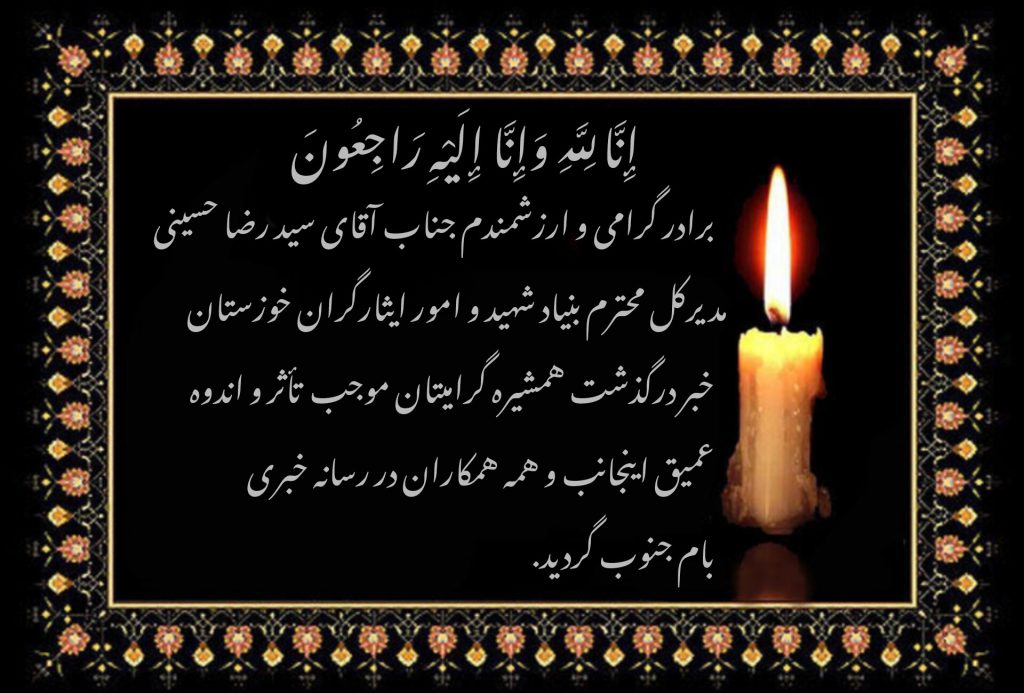 إِنَّا لِلَّهِ وَإِنَّا إِلَيْهِ رَاجِعُونَ
برادر گرامی و ارزشمندم جناب آقای سید رضا حسینی
مدیرکل محترم بنیاد شهید و امور ایثارگران خوزستان
خبر درگذشت همشیره گرامیتان موجب تأثر و اندوه
عمیق اینجانب و همه همکاران در رسانه خبری
بام جنوب گردید.